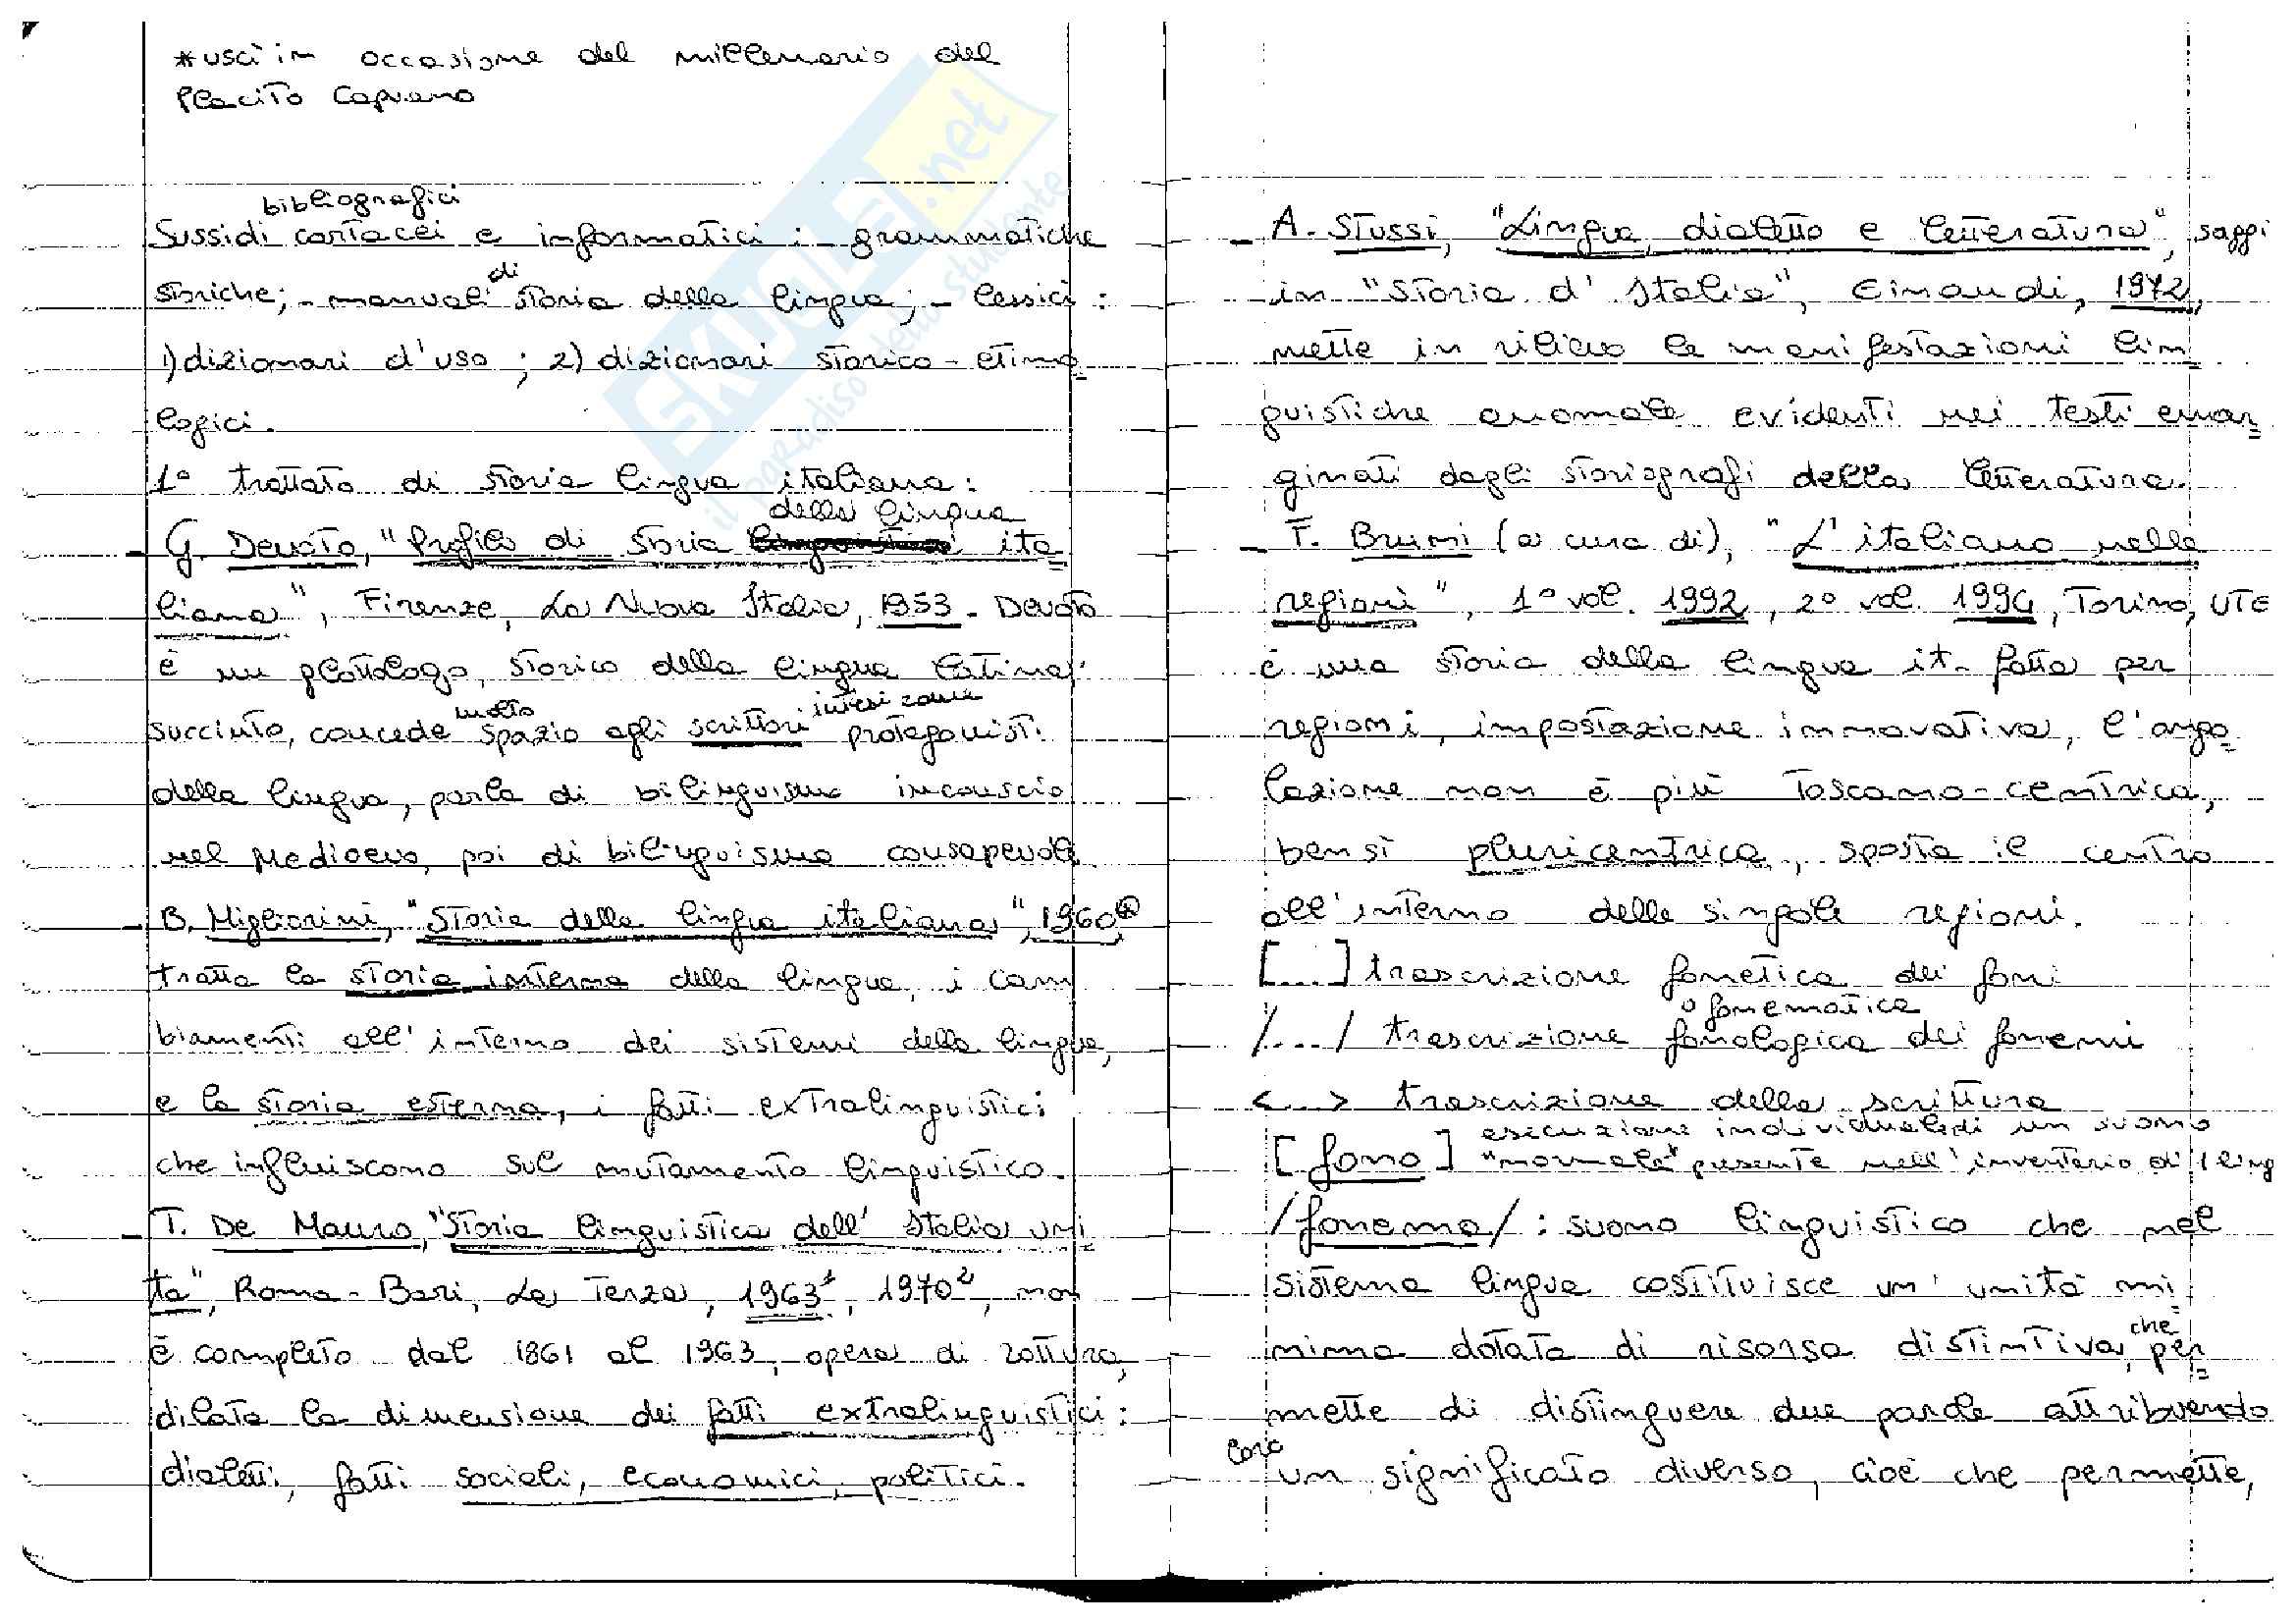 *uscì in occasione del millenario del
Placito Capuano
bibliografici
Sussidi cartacei e informatici: - grammatiche
storiche; - manuali di storia della lingua; - lessici:
1) dizionari d'uso; 2) dizionari storico-etimo=
logici.
1° trattato di storia lingua italiana:
della lingua
- G. Devoto, "Profilo di storia ita=
liana", Firenze, La Nuova Italia, 1953. Devoto
è un glottologo, storico della lingua latina;
succinto, concede molto spazio agli scrittori intesi come protagonisti
della lingua, parla di bilinguismo inconscio
nel Medioevo, poi di bilinguismo consapevole.
- B. Migliorini, "Storia della lingua italiana", 1960*,
tratta la storia interna della lingua, i cam
biamenti all'interno dei sistemi della lingua,
e la storia esterna, i fatti extralinguistici
che influiscono sul mutamento linguistico.
- T. De Mauro, "Storia linguistica dell'Italia uni
ta", Roma-Bari, La Terza, 1963¹, 1970², non
è completo dal 1861 al 1963, opera di rottura,
dilata la dimensione dei fatti extralinguistici:
dialetti, fatti sociali, economici, politici.
- A. Stussi, "Lingua, dialetto e letteratura", saggi
in "Storia d'Italia", Einaudi, 1972,
mette in rilievo le manifestazioni lin
guistiche anomale evidenti nei testi emar=
ginati dagli storiografi della letteratura.
- F. Bruni (a cura di), "L'italiano nelle
regioni", 1° vol. 1992, 2° vol. 1994, Torino, UTE
è una storia della lingua it. fatta per
regioni, impostazione innovativa, l'ango=
lazione non è più toscano-centrica,
bensì pluricentrica, sposta il centro
all'interno delle singole regioni.
[...] trascrizione fonetica dei foni
o fonematica
/.../ trascrizione fonologica dei fonemi
<...> trascrizione della scrittura
esecuzione individuale di un suono
[fono] "normale" presente nell'inventario di 1 ling
/fonema/: suono linguistico che nel
sistema lingua costituisce un'unità mi=
nima dotata di risorsa distintiva, che per=
mette di distinguere due parole attribuendo
loro un significato diverso, cioè che permette,
SKUOLA.net
il paradiso dello studente